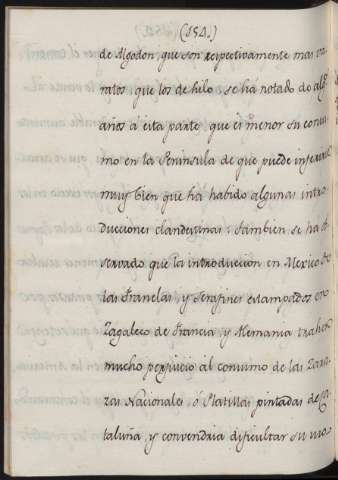 (154.)
de Algodon que son respectivamente mas va
ratos que los de hilo se há notado de algs.
años á esta parte que es menor su consu
mo en la Peninsula de que puede inferirse
muy bien que ha habido algunas intro
ducciones clandestinas: tambien se ha ob
servado que la introducción en Mexico de
las Franelas y Serafines estampados en
Zagalejo de Francia y Alemania trahen
mucho perjuicio al consumo de las Zara
zas Nacionales ó Platillas pintadas de Ca
taluña, y convendria dificultar su uso